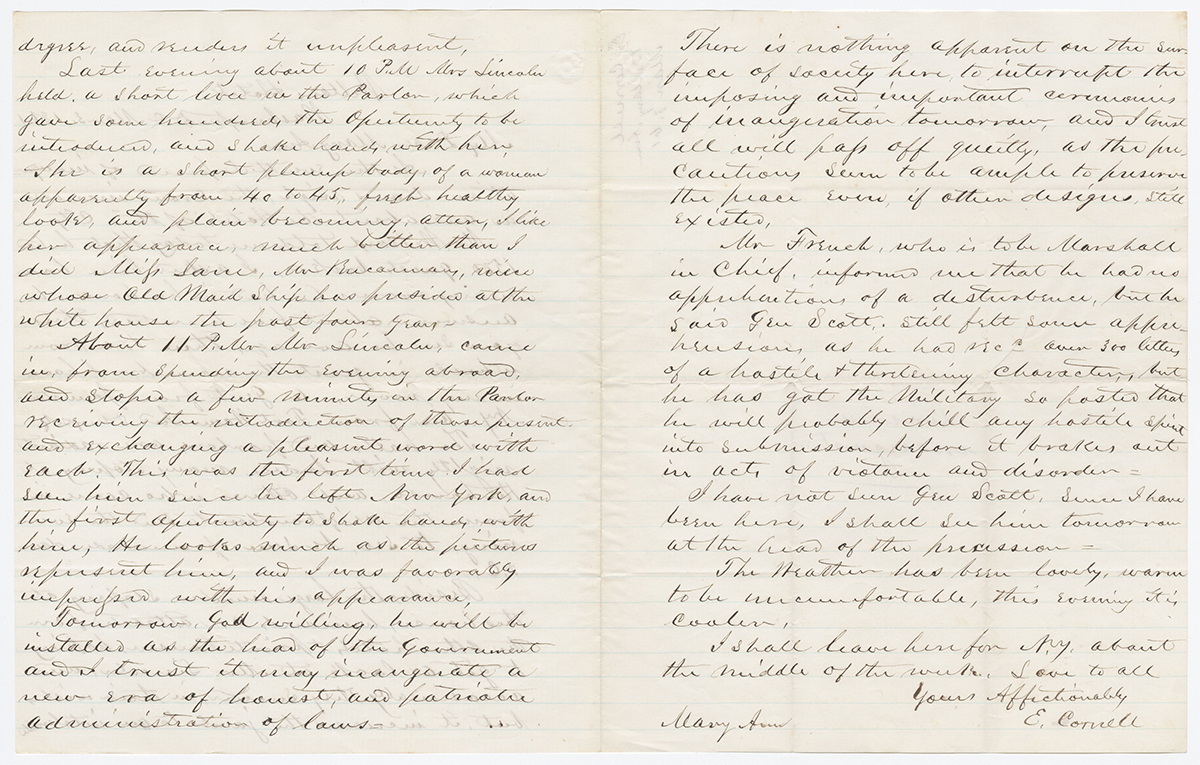 degree, and renders it unpleasent,
Last evening about 10 P.M Mrs Lincoln
held. a short levee in the Parlor, which
gave some hundreds the Opertunity to be
introduced, and shake hands with her,
She is a short plump body, of a woman
apparently from 40 to 45, fresh healthy
look, and plain becoming attire, I like
her appearance, much better than I
did Miss Lane, Mr Bucannans, niece
whose Old Maid Ship has presided at the
white house the past four years
About 11 P.M. Mr Lincoln, came
in, from spending the Evening abroad,
and stoped a few minuts in the Parlor
receiving the introduction of those present.
and exchanging a pleasent word with
each. This was the first time I had
seen him since he left New York, and
the first opertunity to shake hands with
him, He looks much as the pictures
represent him, and I was favorably
impressed with his appearance,
Tomorrow, God willing, he will be
installed as the head of the Government
and I trust it may inaugerate a
new era of honest, and patriotic
administration of laws=
There is nothing apparent on the sur-
face of society here, to interrupt the
imposing and important ceremonies
of inaugeration tomorrow, and I trust
all will pass off quietly, as the pre-
cautions seem to be ample to preserve
the peace even, if other designs, still
existed,
Mr French, who is to be Marshall
in Chief, informed me that he had no
apprehentions of a disturbence, but he
said Gen Scott, still felt some appre-
hensions, as he had recd over 300 letters
of a hostile & thretening character, but
he has got the Military so posted that
he will probably chill any hostile spirit
into submission, before it brakes out
in acts of violance and disorder=
I have not seen Gen Scott, since I have
been here, I shall see him tomorrow
at the head of the precession=
The Weather has been lovely, warm
to be uncumfortable, this evening it is
cooler,
I shall leave here for N.Y. about
the middle of the week, Love to all
Yours Affectionably
Mary Ann E. Cornell